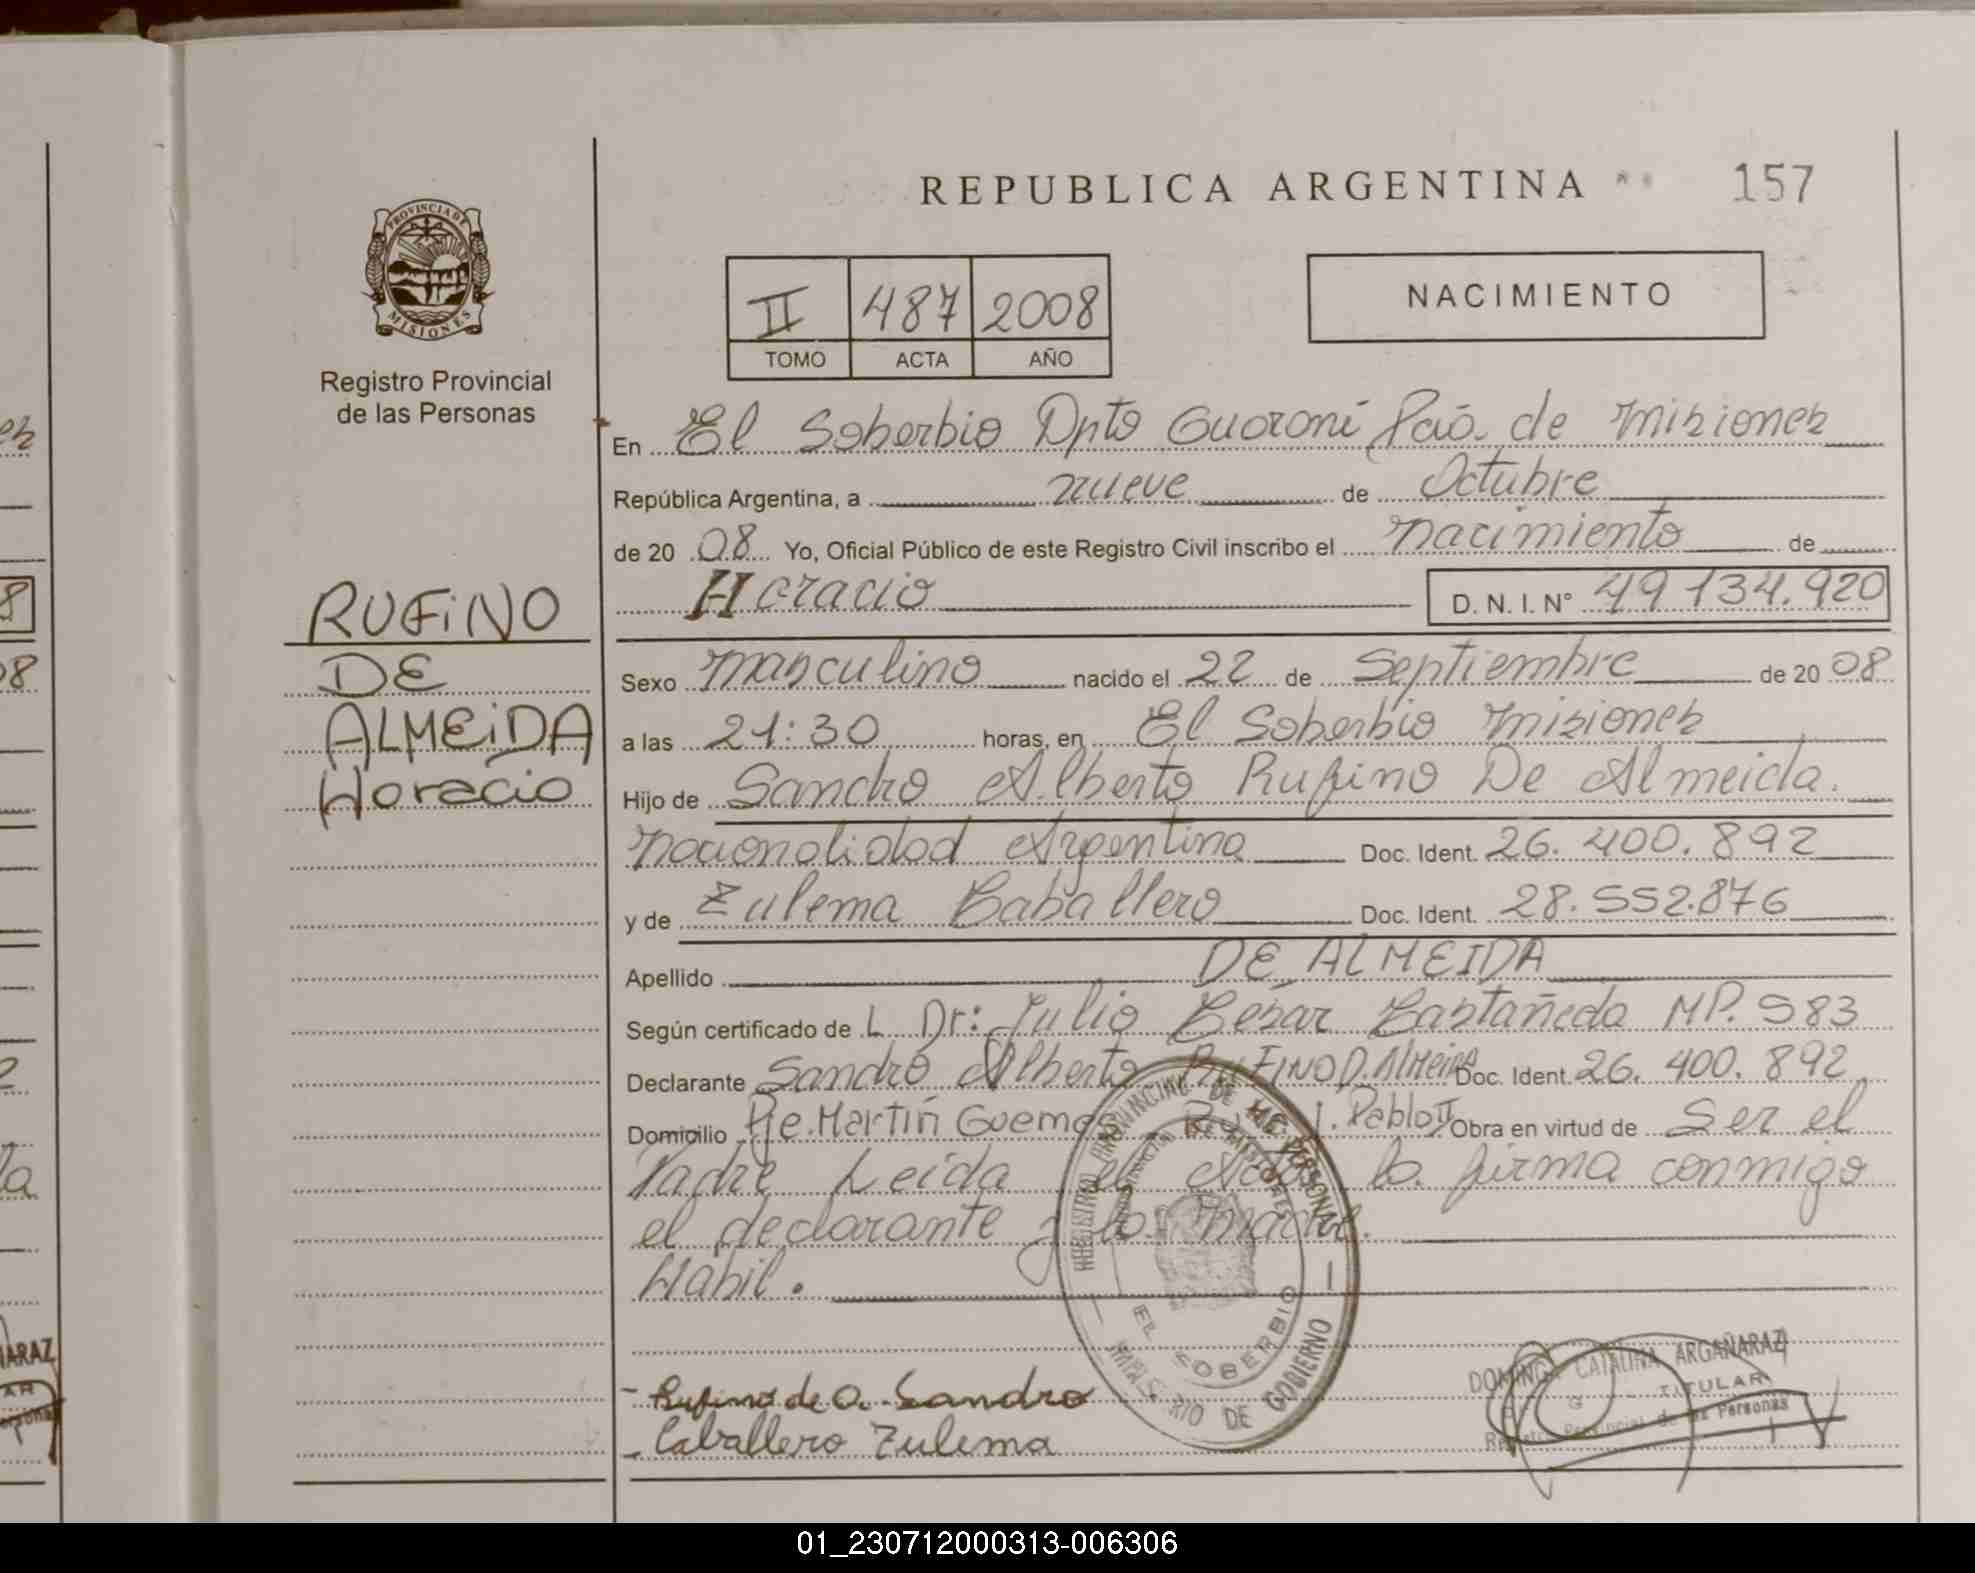 REPUBLICA ARGENTINA
157
PROVINCIA DE
MISIONES
Registro Provincial
de las Personas
II 487 2008
TOMO ACTA AÑO
NACIMIENTO
RUFINO
DE
ALMEIDA
Horacio
En El Soberbio Dpto Guaraní Pcia. de Misiones
República Argentina, a nueve de Octubre
de 20 08 Yo, Oficial Público de este Registro Civil inscribo el nacimiento de
Horacio D. N. I. N° 49 134.920
Sexo masculino nacido el 22 de Septiembre de 20 08
a las 21:30 horas, en El Soberbio Misiones
Hijo de Sandro Alberto Rufino De Almeida.
nacionalidad Argentina Doc. Ident. 26. 400. 892
y de Zulema Caballero Doc. Ident. 28. 552.876
Apellido DE ALMEIDA
Según certificado de L Dr: Julio César Castañeda MP. 983
Declarante Sandro Alberto RUFINO D. Almeida Doc. Ident. 26. 400. 892
Domicilio Pje. Martín Guemes J. Pablo II Obra en virtud de Ser el
Padre Leida el Acta la firma conmigo
el declarante y la madre.
Habil.
REGISTRO PROVINCIAL DE LAS PERSONAS
EL SOBERBIO
MINISTERIO DE GOBIERNO
- Rufino de A. Sandro
- Caballero Zulema
CATALINA ARGAÑARAZ
TITULAR
Provincial de las Personas
ARAZ
01_230712000313-006306